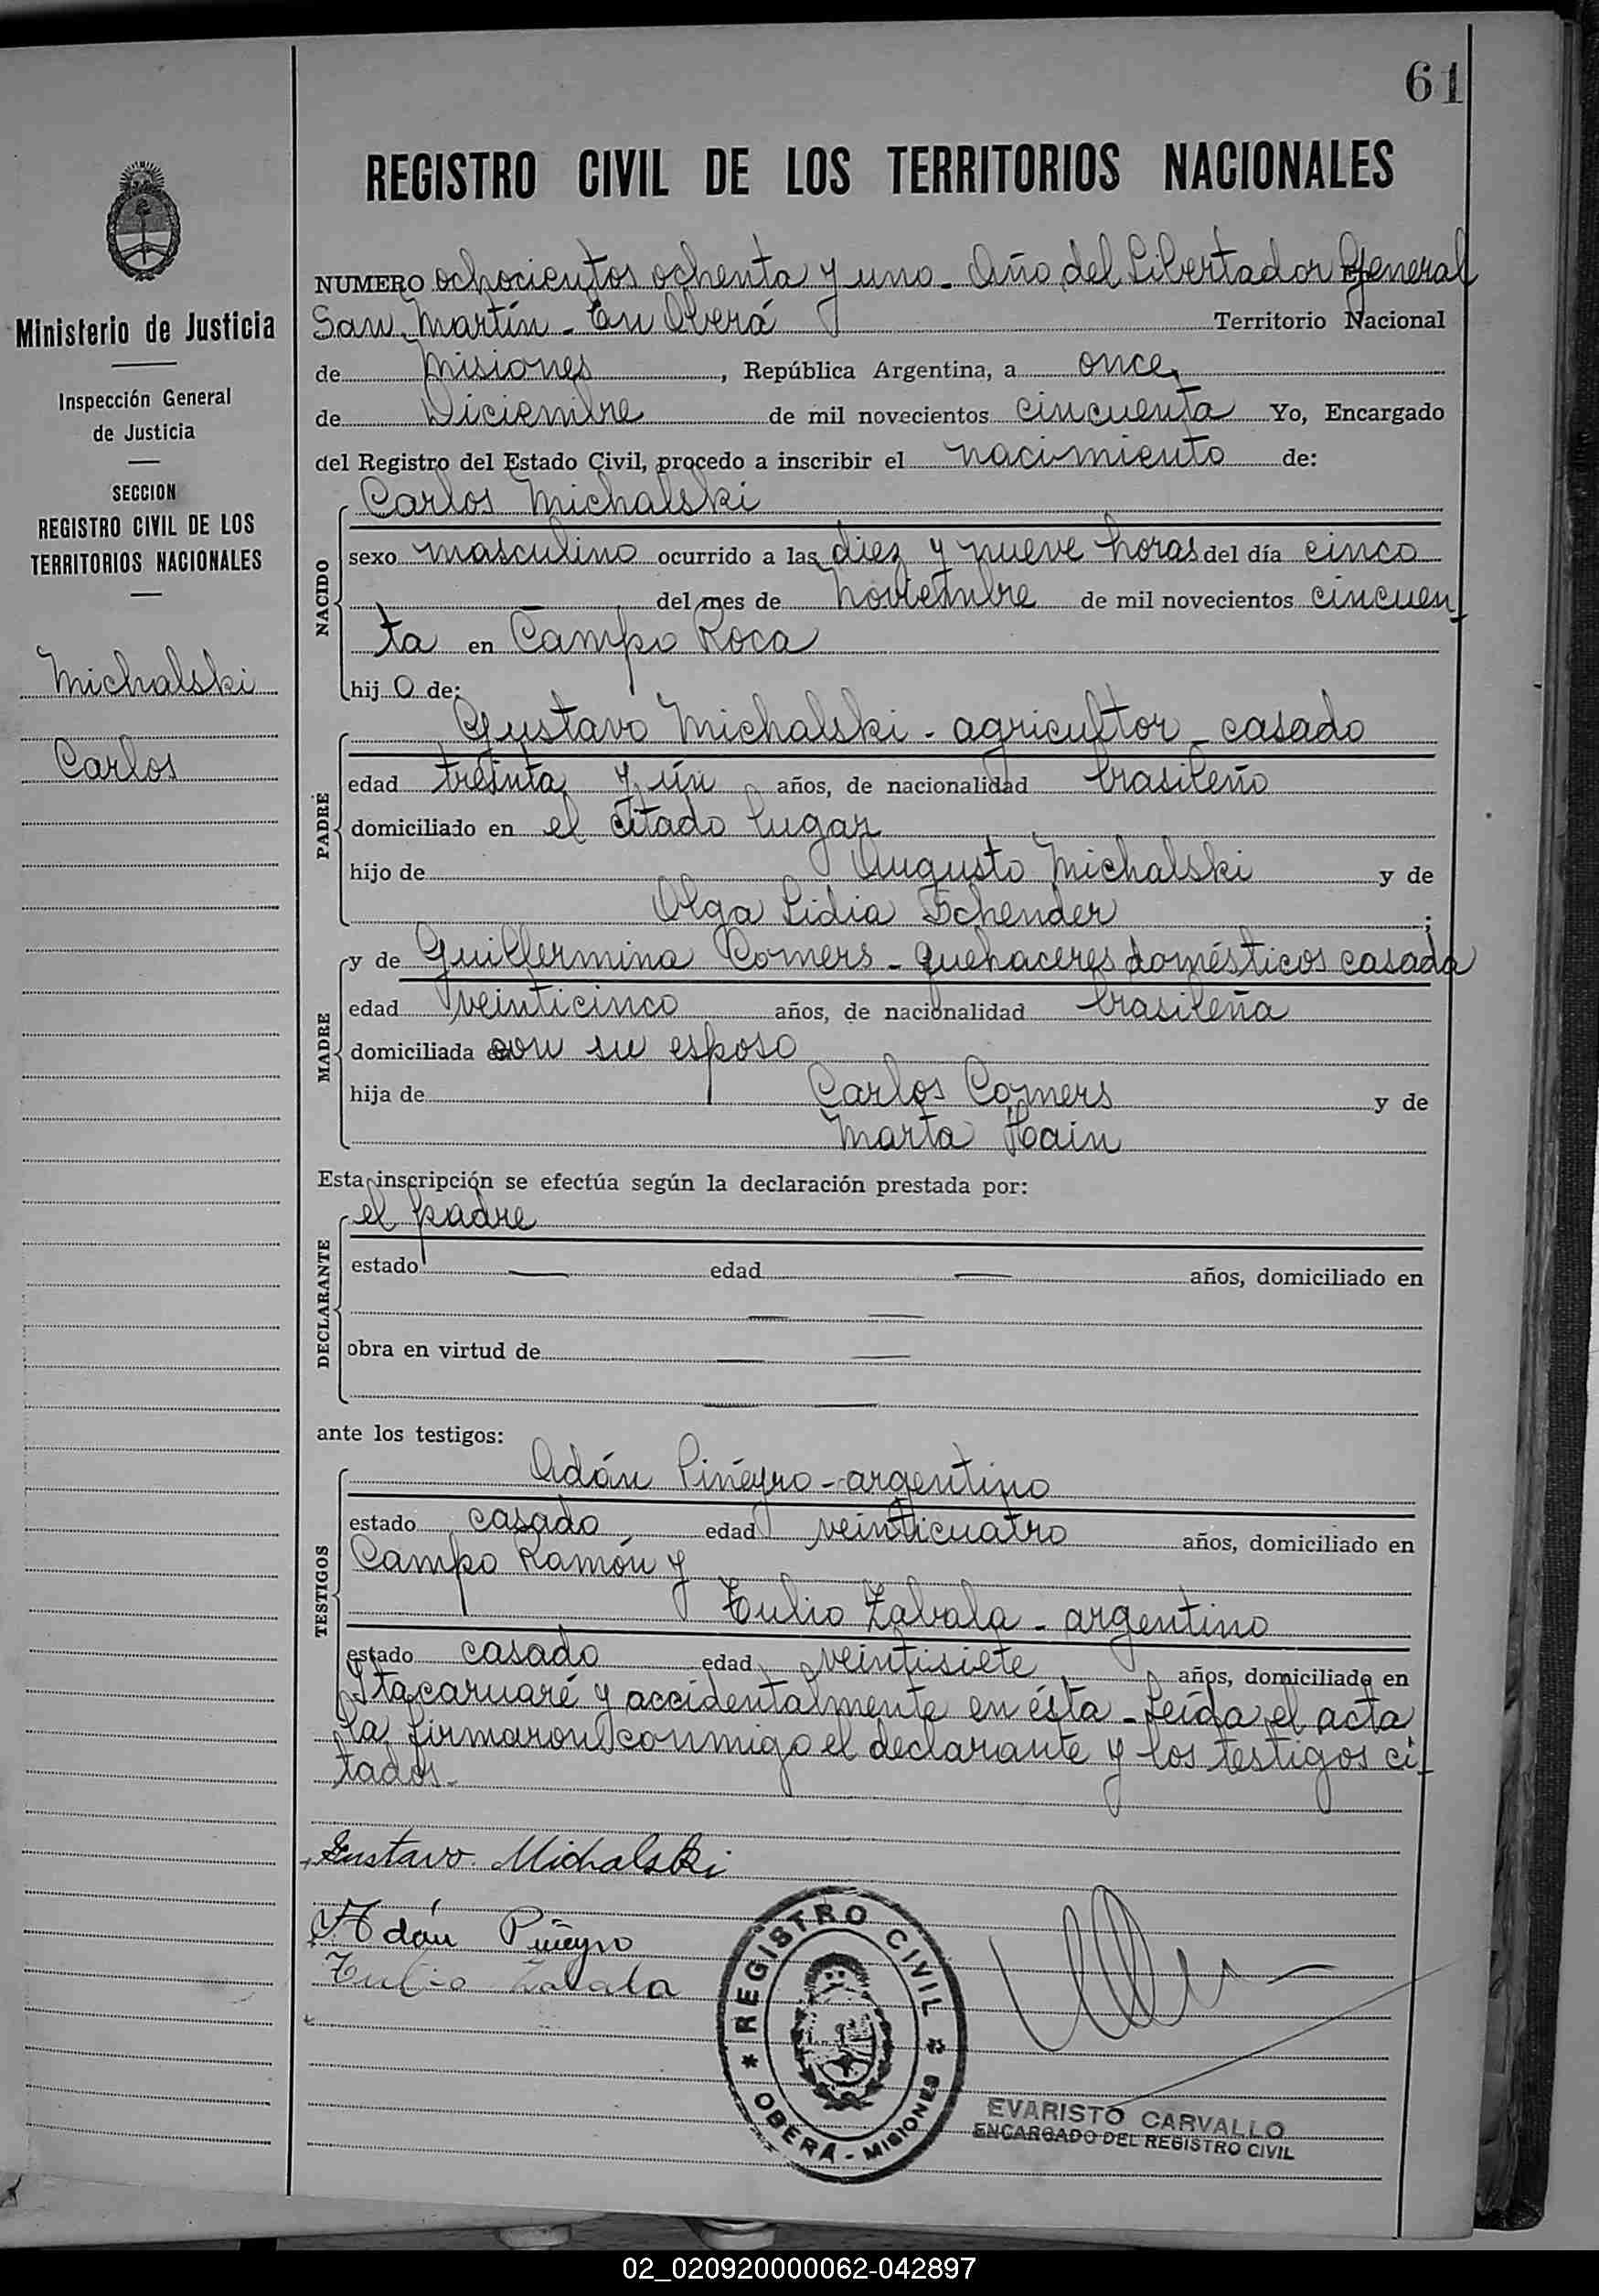 61
REGISTRO CIVIL DE LOS TERRITORIOS NACIONALES
Ministerio de Justicia
Inspección General
de Justicia
SECCION
REGISTRO CIVIL DE LOS
TERRITORIOS NACIONALES
Michalski
Carlos
NUMERO ochocientos ochenta y uno - Año del Libertador General
San Martín - En Oberá Territorio Nacional
de Misiones, República Argentina, a once
de Diciembre de mil novecientos cincuenta Yo, Encargado
del Registro del Estado Civil, procedo a inscribir el nacimiento de:
NACIDO
Carlos Michalski
sexo masculino ocurrido a las diez y nueve horas del día cinco
del mes de Noviembre de mil novecientos cincuen-
ta en Campo Roca
hij o de:
PADRE
Gustavo Michalski - agricultor - casado
edad treinta y ún años, de nacionalidad brasileño
domiciliado en el citado lugar
hijo de Augusto Michalski y de
Olga Lidia Schender;
MADRE
y de Guillermina Comers - quehaceres domésticos casada
edad veinticinco años, de nacionalidad brasileña
domiciliada con su esposo
hija de Carlos Comers y de
Marta Hain
Esta inscripción se efectúa según la declaración prestada por:
DECLARANTE
el padre
estado — edad — años, domiciliado en
— —
obra en virtud de — —
— —
ante los testigos:
TESTIGOS
Adán Piñeyro - argentino
estado casado, edad veinticuatro años, domiciliado en
Campo Ramón y
Tulio Zabala - argentino
estado casado edad veintisiete, años, domiciliado en
Itacaruaré y accidentalmente en ésta - Leída el acta
la firmaron conmigo el declarante y los testigos ci-
tados.-
Gustavo Michalski
Adán Piñeyro
Tulio Zabala
REGISTRO CIVIL
OBERÁ - MISIONES
EVARISTO CARVALLO
ENCARGADO DEL REGISTRO CIVIL
02_020920000062-042897